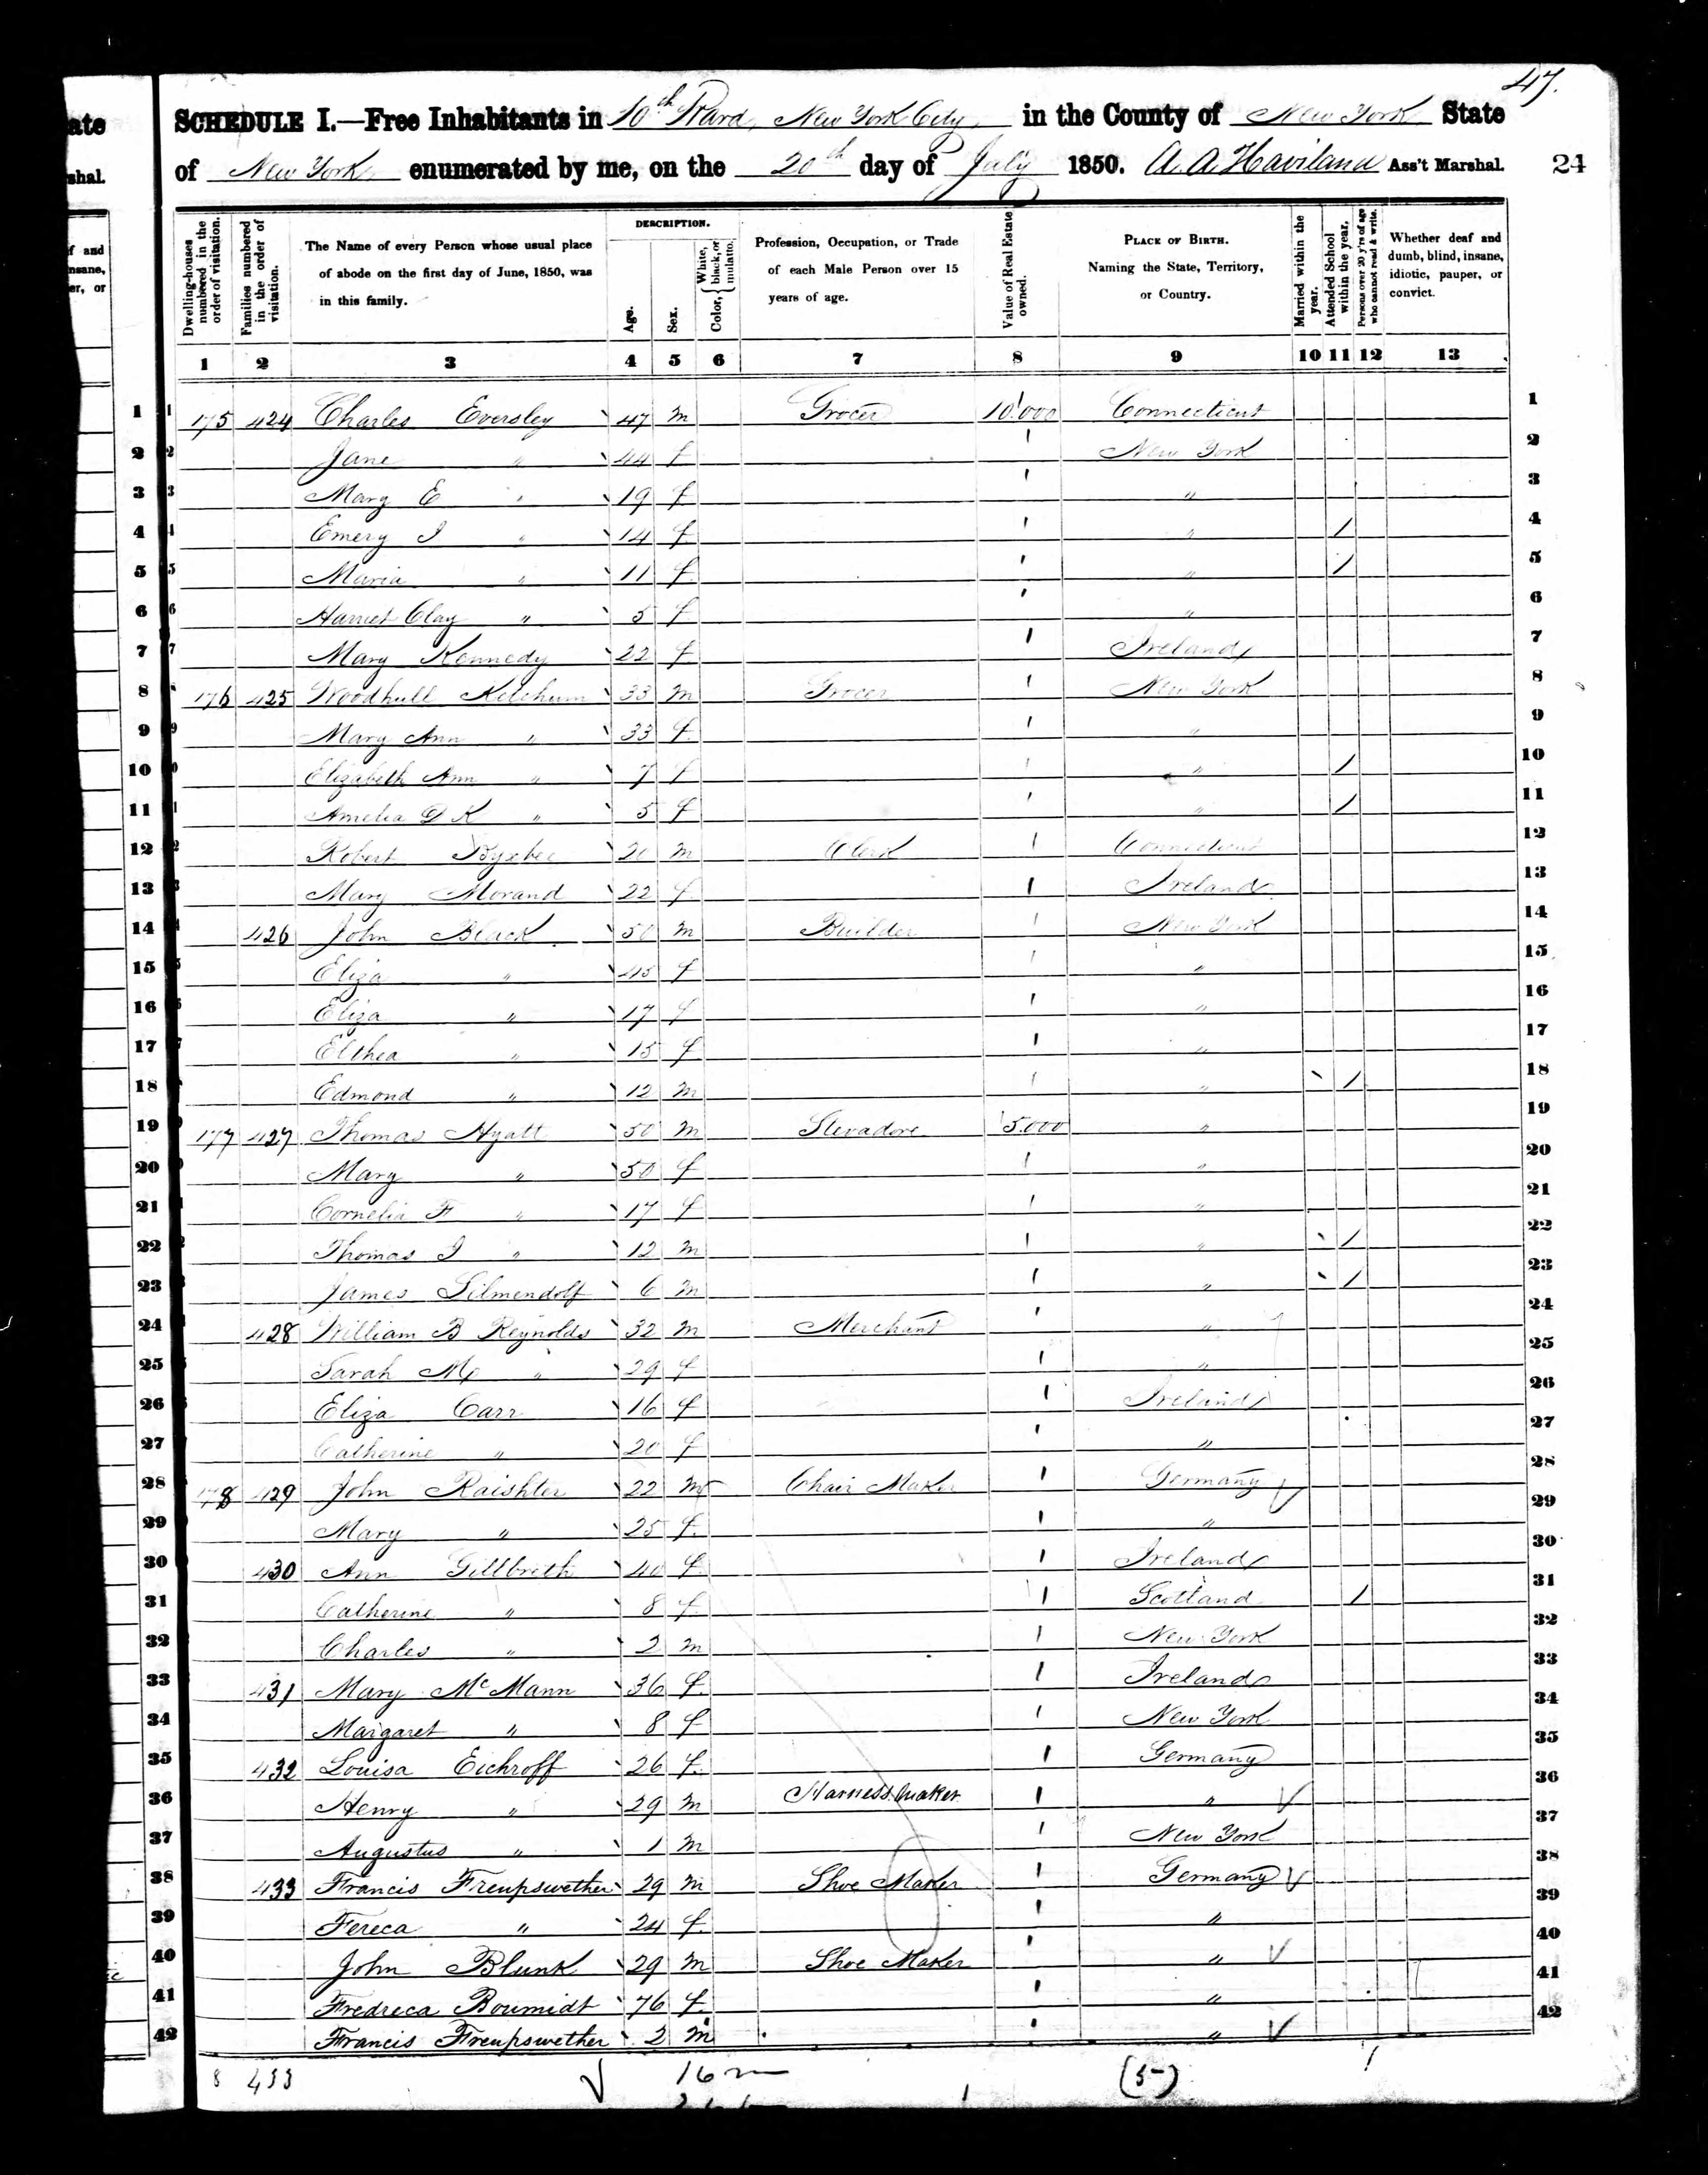 47.
SCHEDULE I.—Free Inhabitants in 10th Ward, New York City, in the County of New York State
of New York enumerated by me, on the 20th day of July 1850. A. A. Haviland Ass't Marshal. 24
Dwelling-houses numbered in the order of visitation.
Families numbered in the order of visitation.
The Name of every Person whose usual place of abode on the first day of June, 1850, was in this family.
DESCRIPTION.
Age.
Sex.
Color, { White, black, or mulatto.
Profession, Occupation, or Trade of each Male Person over 15 years of age.
Value of Real Estate owned.
PLACE OF BIRTH. Naming the State, Territory, or Country.
Married within the year.
Attended School within the year.
Persons over 20 y'rs of age who cannot read & write.
Whether deaf and dumb, blind, insane, idiotic, pauper, or convict.
1 2 3 4 5 6 7 8 9 10 11 12 13
1 175 424 Charles Eversley 47 m Grocer 10.000 Connecticut 1
2 Jane " 44 f New York 2
3 Mary E " 19 f " 3
4 Emery J " 14 f " / 4
5 Maria " 11 f " / 5
6 Harriet Clay " 5 f " 6
7 Mary Kennedy 22 f Ireland 7
8 176 425 Woodhull Ketchum 33 m Grocer New York 8
9 Mary Ann " 33 f " 9
10 Elizabeth Ann " 7 f " / 10
11 Amelia D K " 5 f " / 11
12 Robert Byxbee 20 m Clerk Connecticut 12
13 Mary Morand 22 f Ireland 13
14 426 John Black 50 m Builder New York 14
15 Eliza " 45 f " 15
16 Eliza " 17 f " 16
17 Elthea " 15 f " 17
18 Edmond " 12 m " / 18
19 177 427 Thomas Hyatt 50 m Stevadore 5.000 " 19
20 Mary " 50 f " 20
21 Cornelia F " 17 f " 21
22 Thomas J " 12 m " / 22
23 James Silmendolf 6 m " / 23
24 428 William B Reynolds 32 m Merchant " 24
25 Sarah M " 29 f " 25
26 Eliza Carr 16 f Ireland 26
27 Catherine " 20 f " 27
28 178 429 John Raishter 22 m Chair Maker Germany 28
29 Mary " 25 f " 29
30 430 Ann Gillbreth 40 f Ireland 30
31 Catherine " 8 f Scotland / 31
32 Charles " 2 m New York 32
33 431 Mary McMann 36 f Ireland 33
34 Margaret " 8 f New York 34
35 432 Louisa Eichroff 26 f Germany 35
36 Henry " 29 m Harness Maker " 36
37 Augustus " 1 m New York 37
38 433 Francis Freupswether 29 m Shoe Maker Germany 38
39 Fereca " 24 f " 39
40 John Blunk 29 m Shoe Maker " 40
41 Fredreca Boumidt 76 f " 41
42 Francis Freupswether 2 m " 42
8 433 16 m (5)